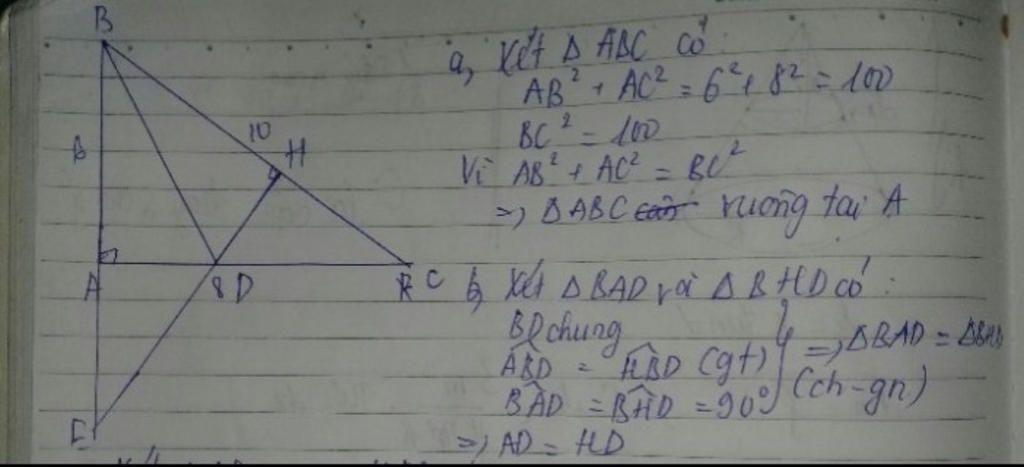 B
10
H
6
A
8 D
C
E
a, Xét Δ ABC có:
AB² + AC² = 6² + 8² = 100
BC² = 100
Vì AB² + AC² = BC²
=> ΔABC vuông tại A
b, Xét ΔBAD và ΔBHD có:
BD chung
ABD = HBD (gt)
BAD = BHD = 90°
=> ΔBAD = ΔBHD
(ch-gn)
=> AD = HD